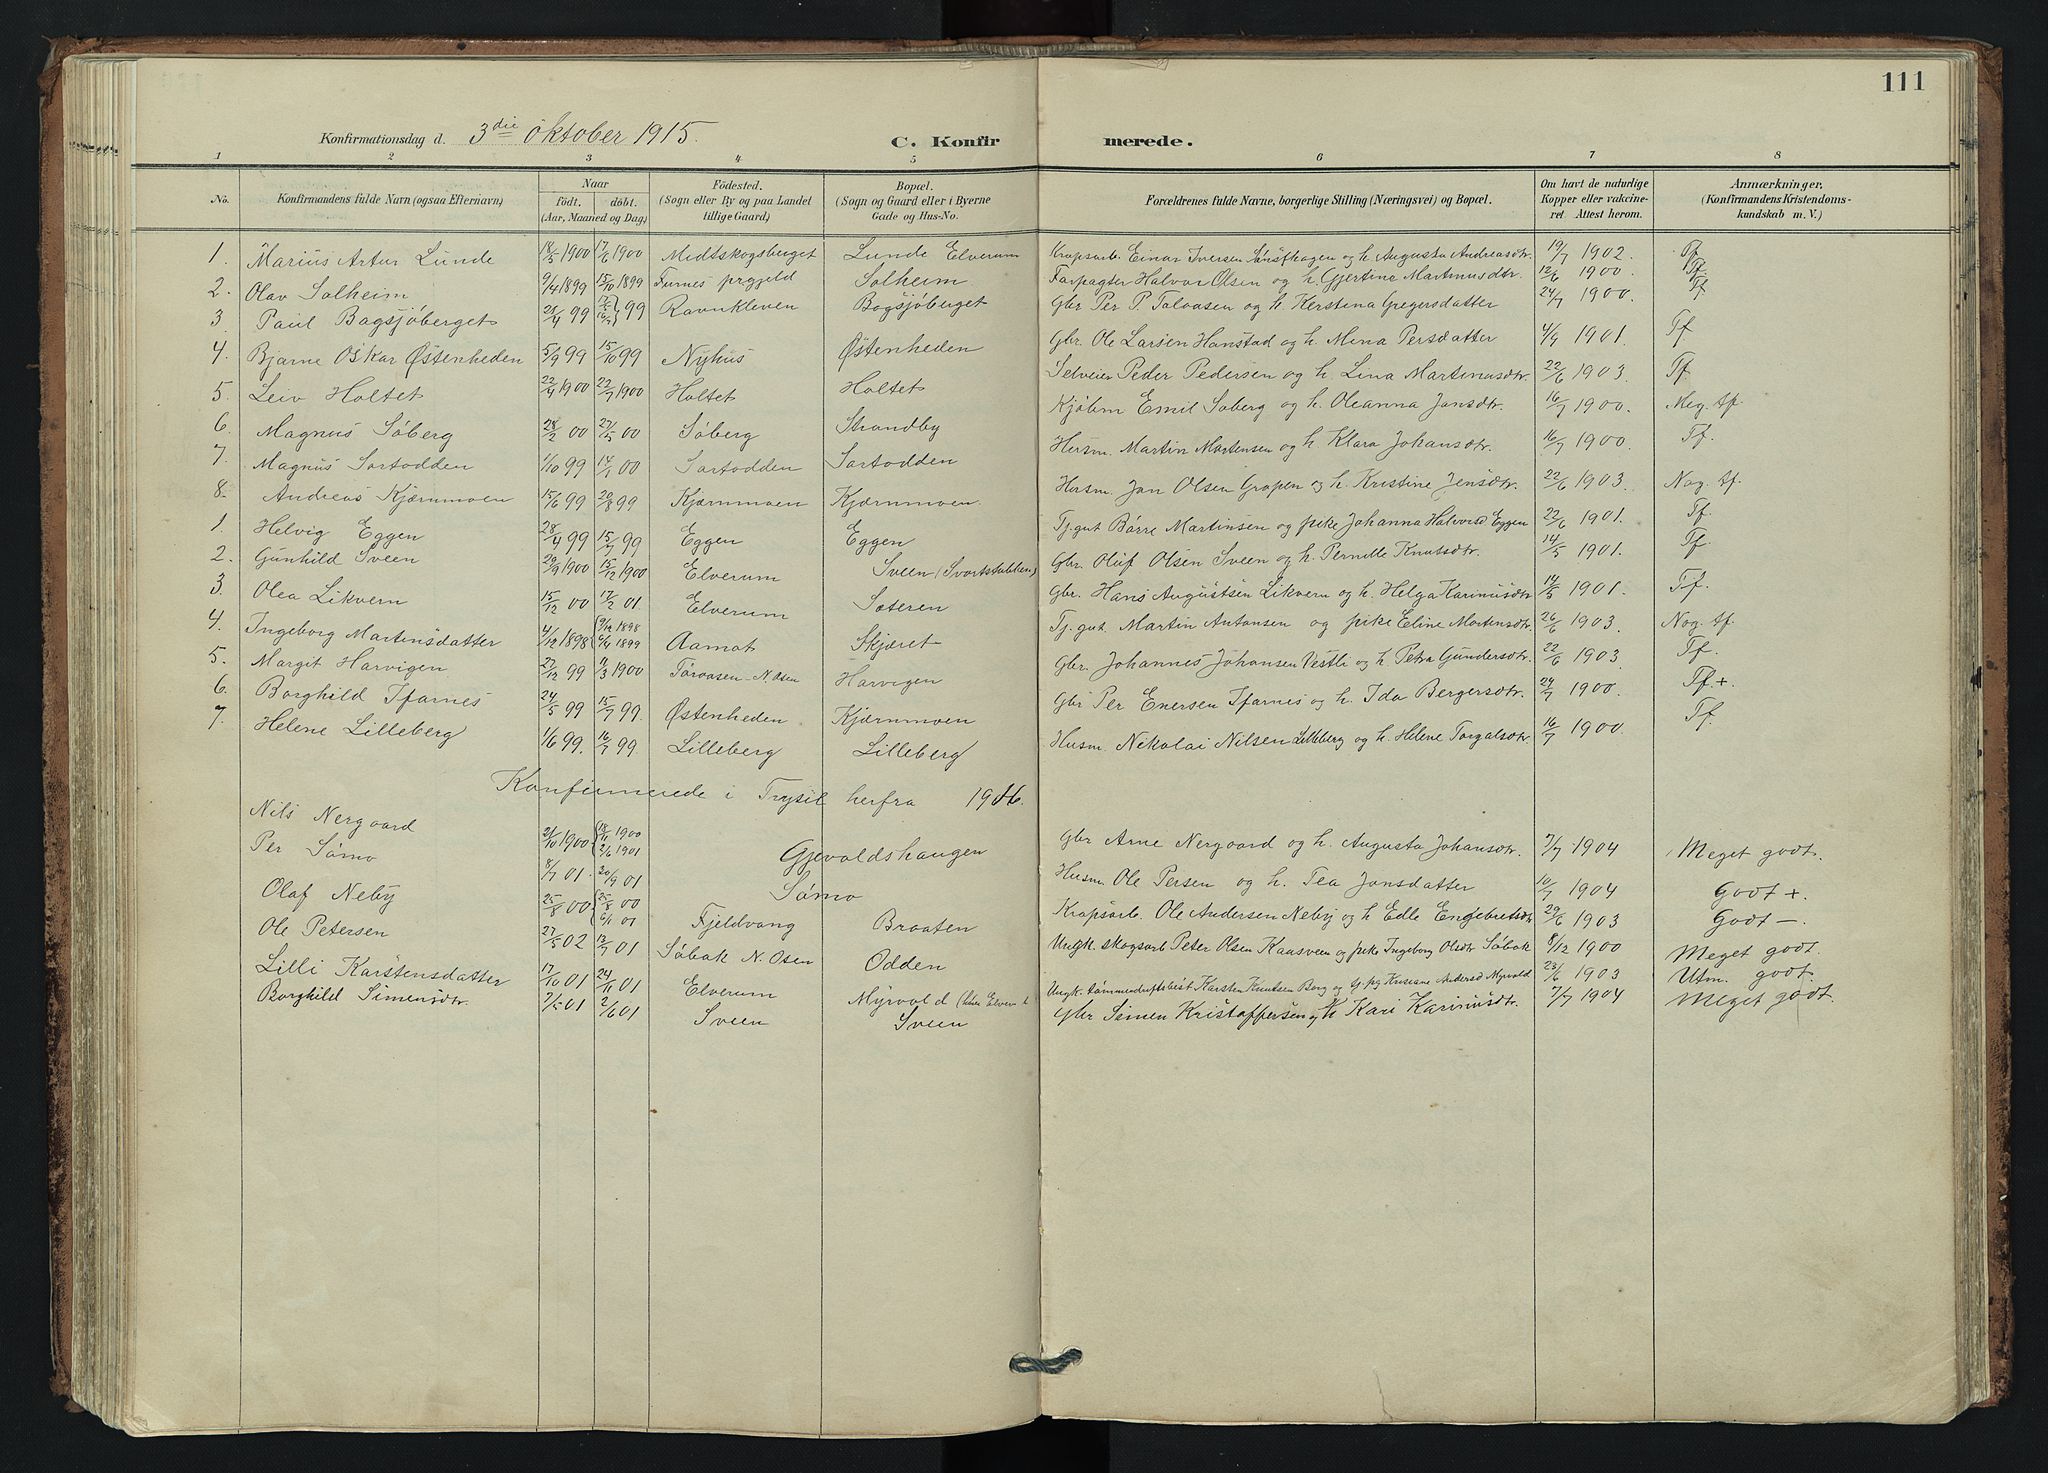 111
Konfirmationsdag d. 3die oktober 1915. C. Konfirmerede.
1 2 3 4 5 6 7 8
No. Konfirmandens fulde Navn (ogsaa Efternavn) Naar födt. döbt. (Aar, Maaned og Dag) Födested. (Sogn eller By og paa Landet tillige Gaard) Bopæl. (Sogn og Gaard eller i Byerne Gade og Hus-No. Forældrenes fulde Navne, borgerlige Stilling (Næringsvei) og Bopæl. Om havt de naturlige Kopper eller vakcineret. Attest herom. Anmærkninger, (Konfirmandens Kristendomskundskab m. V.)
1. Marius Artur Lunde 18/5 1900 17/6 1900 Midtskogsberget Lunde Elverum Kropsarb. Einar Iversen og h. Augusta Andreasdtr. 19/7 1902. Tf.
2. Olav Solheim 9/4 1899 15/10 1899 Furnes prgjeld Solheim Forpagter Halvor Olsen og h. Gjertine Martinusdtr. 12/6 1900. Tf.
3 Paul Bagsjöberget 28/4 99 99 Ravnkleven Bagsjöberget Gbr Per P. Talaasen og h. Kerstina Gregersdatter 24/7 1900. Tf
4. Bjarne Oskar Østenheden 5/9 99 15/10 99 Nyhus Østenheden Gbr. Ole Larsen Hanstad og h. Mina Persdatter 4/9 1901. Tf
5. Leiv Holtet 22/4 1900 22/7 1900 Holtet Holtet Selveier Peder Pedersen og h. Lina Martinusdtr. 22/6 1903. Tf.
6. Magnus Söberg 28/2 00 27/5 00 Söberg Strandby Kjöbm Emil Soberg og h. Oleanna Jonsdtr. 16/7 1900. Meg. tf.
7. Magnus Sortodden 1/10 99 14/1 00 Sortodden Sortodden Husm. Martin Mortensen og h. Klara Johansdtr. 16/7 1900. Tf.
8. Andreas Kjærnmoen 15/6 99 20/8 99 Kjærnmoen Kjærnmoen. Husm. Jon Olsen Grapen og h. Kristine Jensdtr. 22/6 1903. Nog. tf.
1. Helvig Eggen 28/4 99 15/7 99 Eggen Eggen Tj.gut Börre Martinsen og pike Johanna Halvorsd Eggen 22/6 1901. Tf.
2. Gunhild Sveen 29/9 1900 15/12 1900 Elverum Sveen (Svartstubben) Gbr. Oluf Olsen Sveen og h. Pernille Knutsdtr. 14/5 1901. Tf.
3. Olea Likvern 15/12 00 17/2 01. Elverum Sæteren Gbr. Hans Augustsen Likvern og h. Helga Karinusdtr 14/5 1901. Tf.
4. Ingeborg Martinsdatter 4/12 1898 9/12 1898 6/4 1899 Aamot Skjæret Tj.gut. Martin Antonsen og pike Eline Mortensdtr. 26/6 1903. Nog. tf.
5. Margit Harvigen 27/12 99 11/3 1900 Töraasen - N. Osen Harvigen Gbr. Johannes Johansen Vestli og h. Petra Gundersdtr. 22/6 1903. Tf.
6. Borghild Ifarnes 24/5 99 15/7 99. Østenheden Kjærnmoen Gbr Per Enersen Ifarnes og h. Ida Bergersdtr. 24/7 1900. Tf.+.
7. Helene Lilleberg 1/6 99. 16/7 99 Lilleberg Lilleberg Husm. Nikolai Nilsen Lilleberg og h. Helene Torgalsdtr. 16/7 1900. Tf.
Konfirmerede i Trysil herfra 1916.
Nils Nergaard 21/10 1900 18/11 1900 2/6 1901 Gjevaldshaugen Gbr Arne Nergaard og h. Augusta Johansdtr. 7/7 1904 Meget godt.
Per Sömo 8/7 01. 20/9 01 Sömo Husm. Ole Persen og h. Tea Jonsdatter 10/7 1904 Godt +
Olaf Neby 25/8 00 25/8 00 6/1 01 Fjeldvang Braaten Kropsarb. Ole Andersen Neby og h Edle Engebretsdtr 29/6 1903 Godt -.
Ole Petersen 27/5 02 12/7 01 Söbak N. Osen Odden Ungk. skogsarb Peter Olsen Kaasveen og pike Ingeborg Olsdtr Söbak 8/12 1900 Meget godt.
Lilli Karstensdatter 17/10 01 24/11 01 Elverum Myrvold Ungk. Karsten Knutsen Berg og Andersd Myrvold 23/6 1903 Utm. godt.
Borghild Simensdtr. 01 2/6 01 Sveen Sveen Gbr Simen Kristoffersen og h Kari Karinusdtr. 7/7 1904 Meget godt.